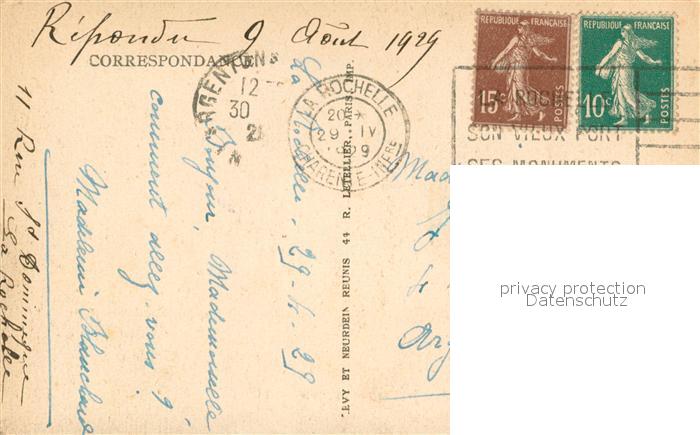 Répondu 9 Août 1929
CORRESPONDANCE
REPUBLIQUE FRANÇAISE
15c
POSTES
REPUBLIQUE FRANÇAISE
10c
POSTES
12
30
LA ROCHELLE
20
29 IV
CHARENTE-INFRE
SON VIEUX PORT
SES MONUMENTS
La Rochelle, 29-4-29
Bonjour, Mademoiselle
comment allez-vous ?
Madeleine Blanchard
11 Rue St Dominique
La Rochelle
LEVY ET NEURDEIN REUNIS 44 R. LETELLIER, PARIS. IMP.
privacy protection
Datenschutz